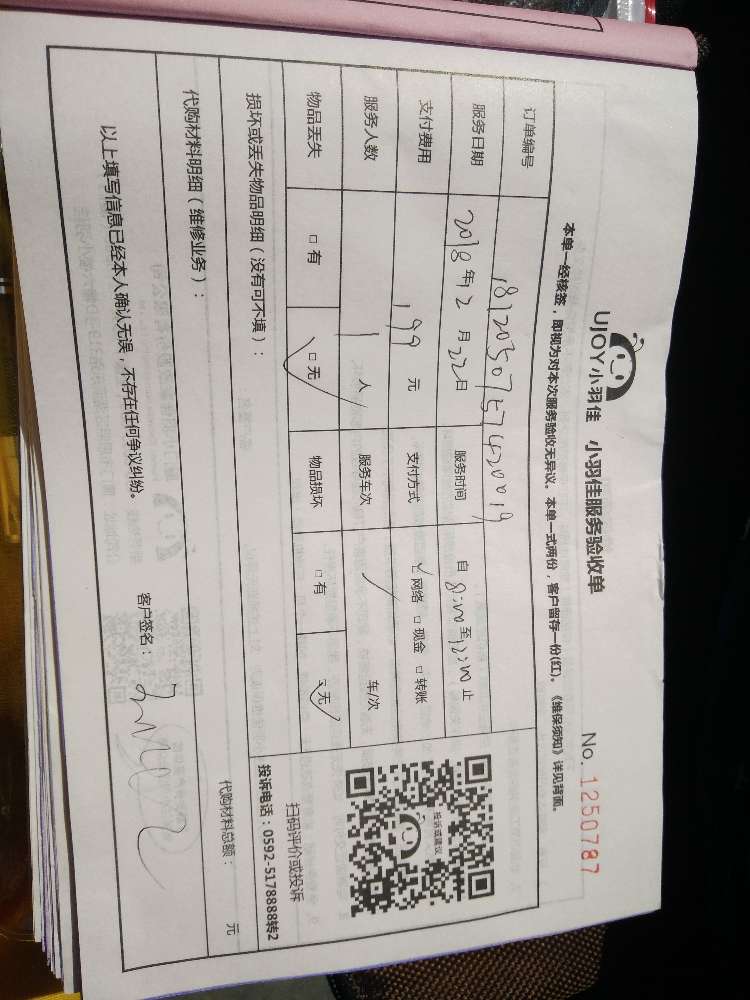 UJOY小羽佳 小羽佳服务验收单
No. 1250787
本单一经核签，即视为对本次服务验收无异议。本单一式两份，客户留存一份(红)。《维保须知》详见背面。
订单编号 1812050757420019
服务日期 2018年12月22日 服务时间 自8:00至12:00止
支付费用 199元 支付方式 ☑网络 □现金 □转账
服务人数 1人 服务车次 / 车/次
物品丢失 □有 ☑无 物品损坏 □有 ☑无
投诉或建议
扫码评价或投诉
投诉电话：0592-5178888转2
损坏或丢失物品明细（没有可不填）：
代购材料明细（维修业务）：
代购材料总额： 元
以上填写信息已经本人确认无误，不存在任何争议纠纷。
客户签名：